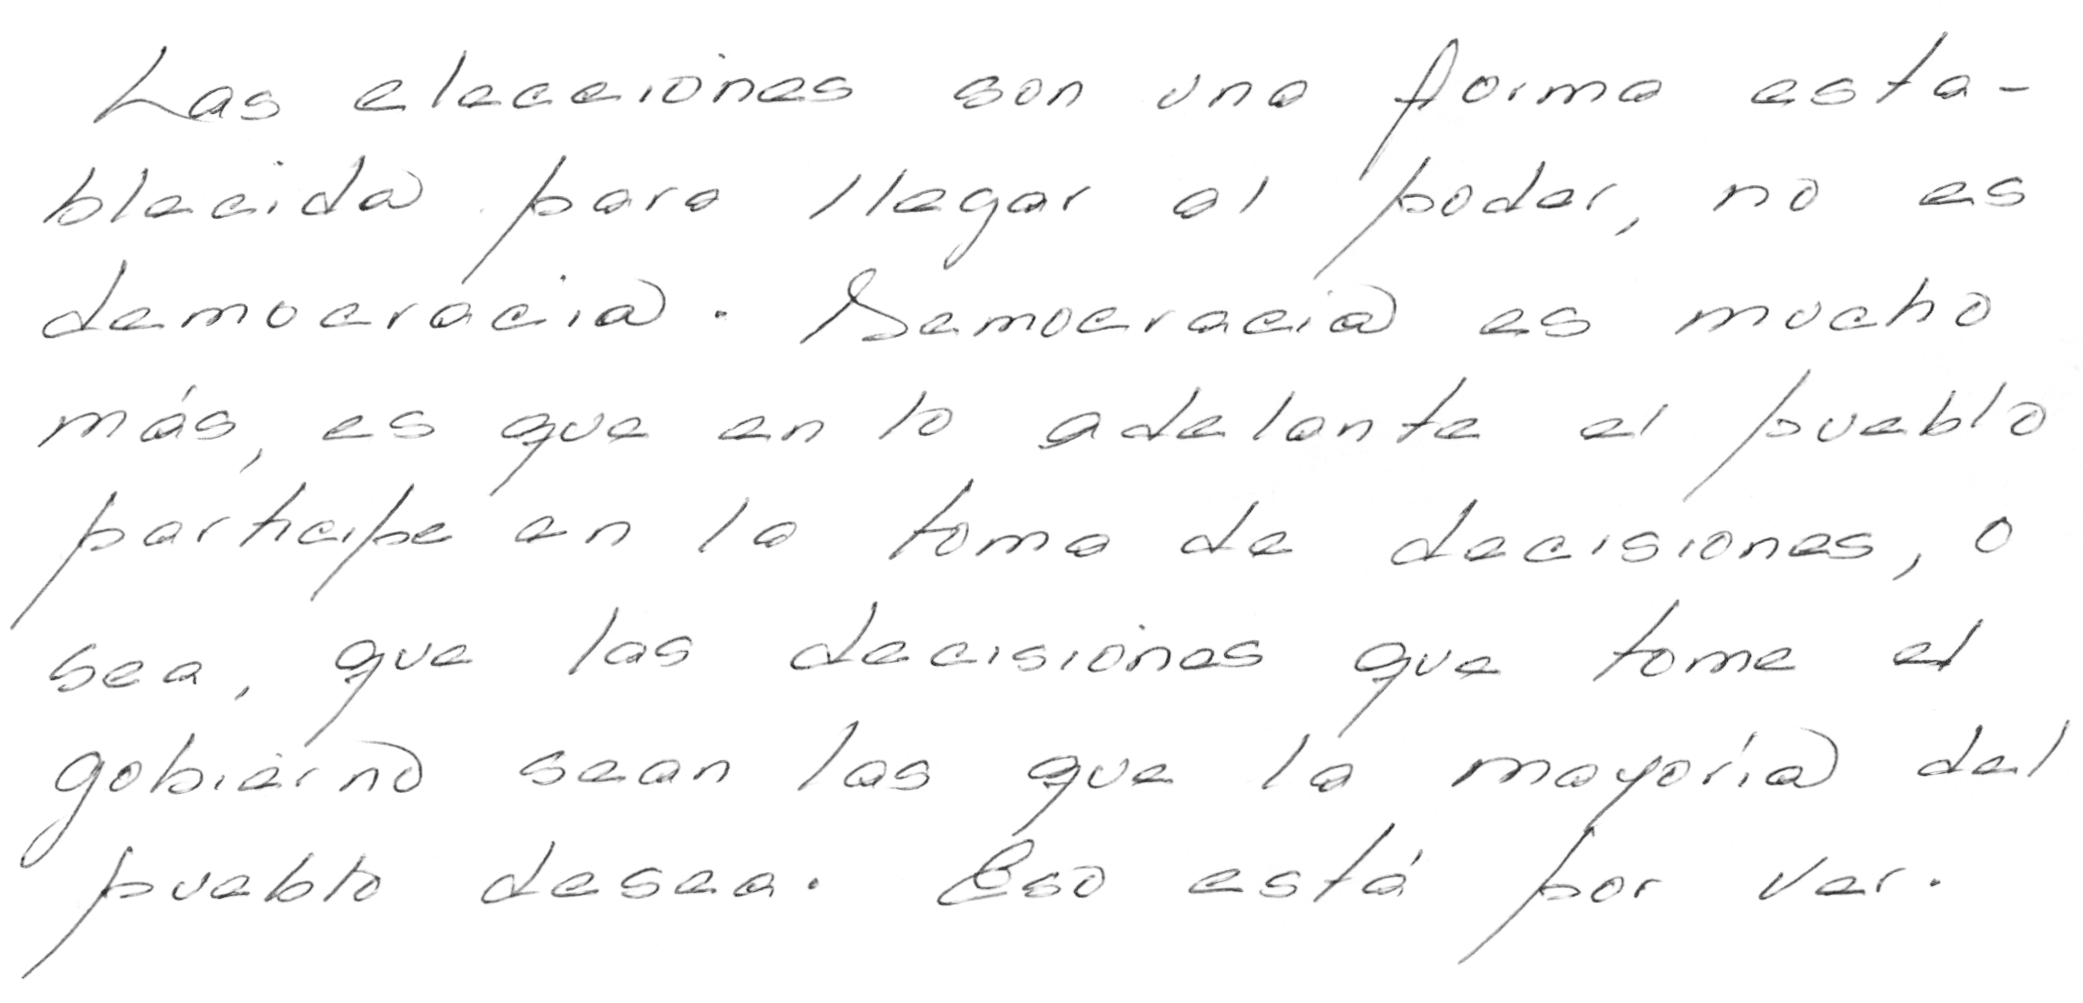 Las elecciones son una forma esta-
blecida para llegar al poder, no es
democracia. Democracia es mucho
más, es que en lo adelante el pueblo
participe en la toma de decisiones, o
sea, que las decisiones que tome el
gobierno sean las que la mayoría del
pueblo desea. Eso está por ver.